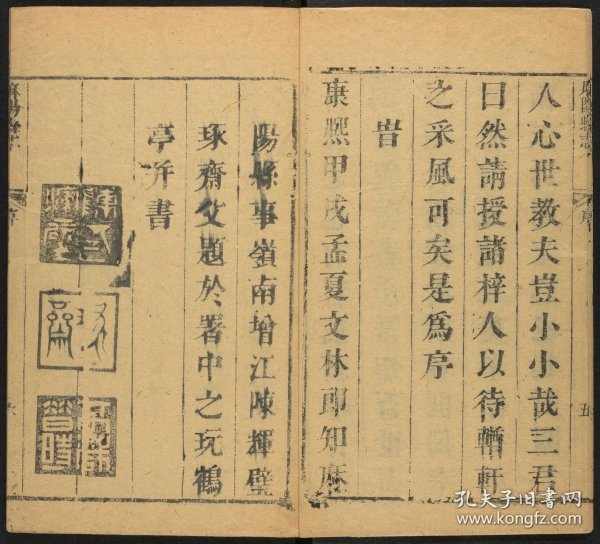 人心世教夫豈小小哉三君
曰然請授諸梓人以待輶軒
之采風可矣是爲序
旹
康熙甲戌孟夏文林郎知麻
陽縣事嶺南增江陳輝璧
琢齋父題於署中之玩鶴
亭并書
麻陽縣志
序
五
孔夫子旧书网
www.kongfz.com